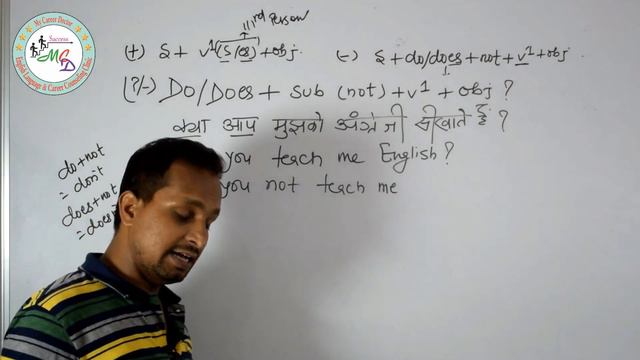 My Career Doctor
Success
MCD
English Language & Career Counseling Clinic
IIIrd Person
(+) S + V¹(s/es) + obj. (-) S + do/does + not + V¹ + obj.
(?/-) Do/Does + sub (not) + V¹ + obj ?
क्या आप मुझको अंग्रेजी सीखाते हैं ?
you teach me English?
you not teach me
do + not
= don't
does + not